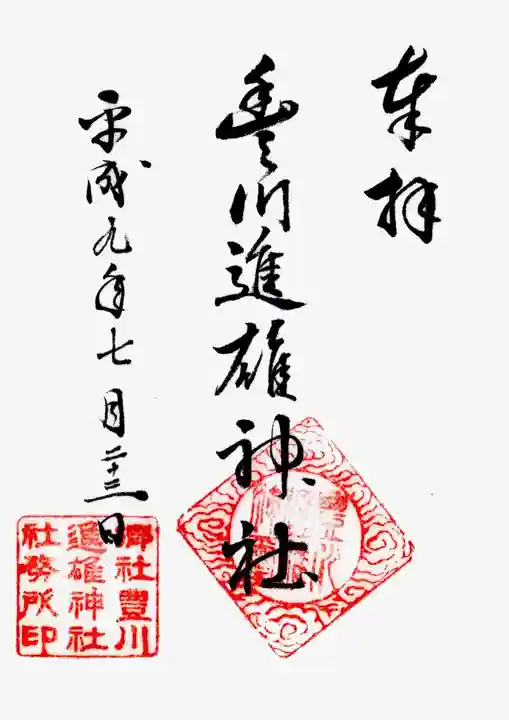 奉拝
豊川進雄神社
平成九年七月二十三日
郷社豐川
進雄神社
社務所印